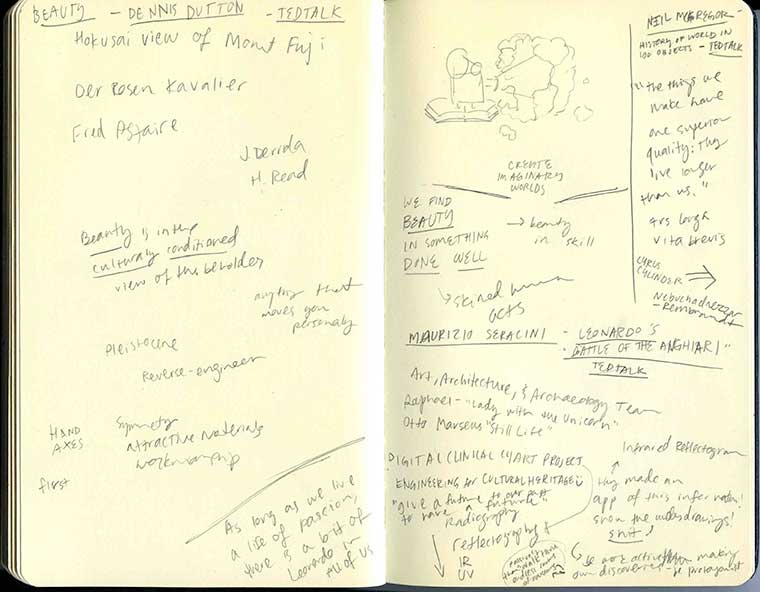 BEAUTY - DENNIS DUTTON - TEDTALK
Hokusai view of Mount Fuji
Der Rosen Kavalier
Fred Astaire
J. Derrida
H. Read
Beauty is in the
culturaly conditioned
view of the beholder
anything that
moves you
personaly
Pleistocene
Reverse-engineer
HAND
AXES
Symmetry
attractive materials
workmanship
first
As long as we live
a life of passion,
there is a bit of
Leonardo in
All of us
CREATE
IMAGINARY
WORLDS
WE FIND
BEAUTY
IN SOMETHING
DONE WELL
→ beauty
in skill
↳ skilled human
acts
NEIL MCGREGOR -
HISTORY OF WORLD IN
100 OBJECTS - TEDTALK
"the things we
make have
one superior
quality: They
live longer
than us."
Ars longa
vita brevis
CYRUS
CYLINDER
Nebuchadnezzar
- Rembrandt
MAURIZIO SERACINI - LEONARDO'S
"BATTLE OF THE ANGHIARI"
TEDTALK
Art, Architecture, & Archaeology Team
Raphael - "Lady with the Unicorn"
Otto Marseus "Still Life"
DIGITAL CLINICAL CHART PROJECT
ENGINEERING for CULTURAL HERITAGE
"give a future to our past
to have a future"
Radiography
reflectography
IR
UV
Infrared Reflectogram
↑
they made an
app of this information!
show the underdrawings!
shit!
be more active than
making
own discoveries - be protagonist